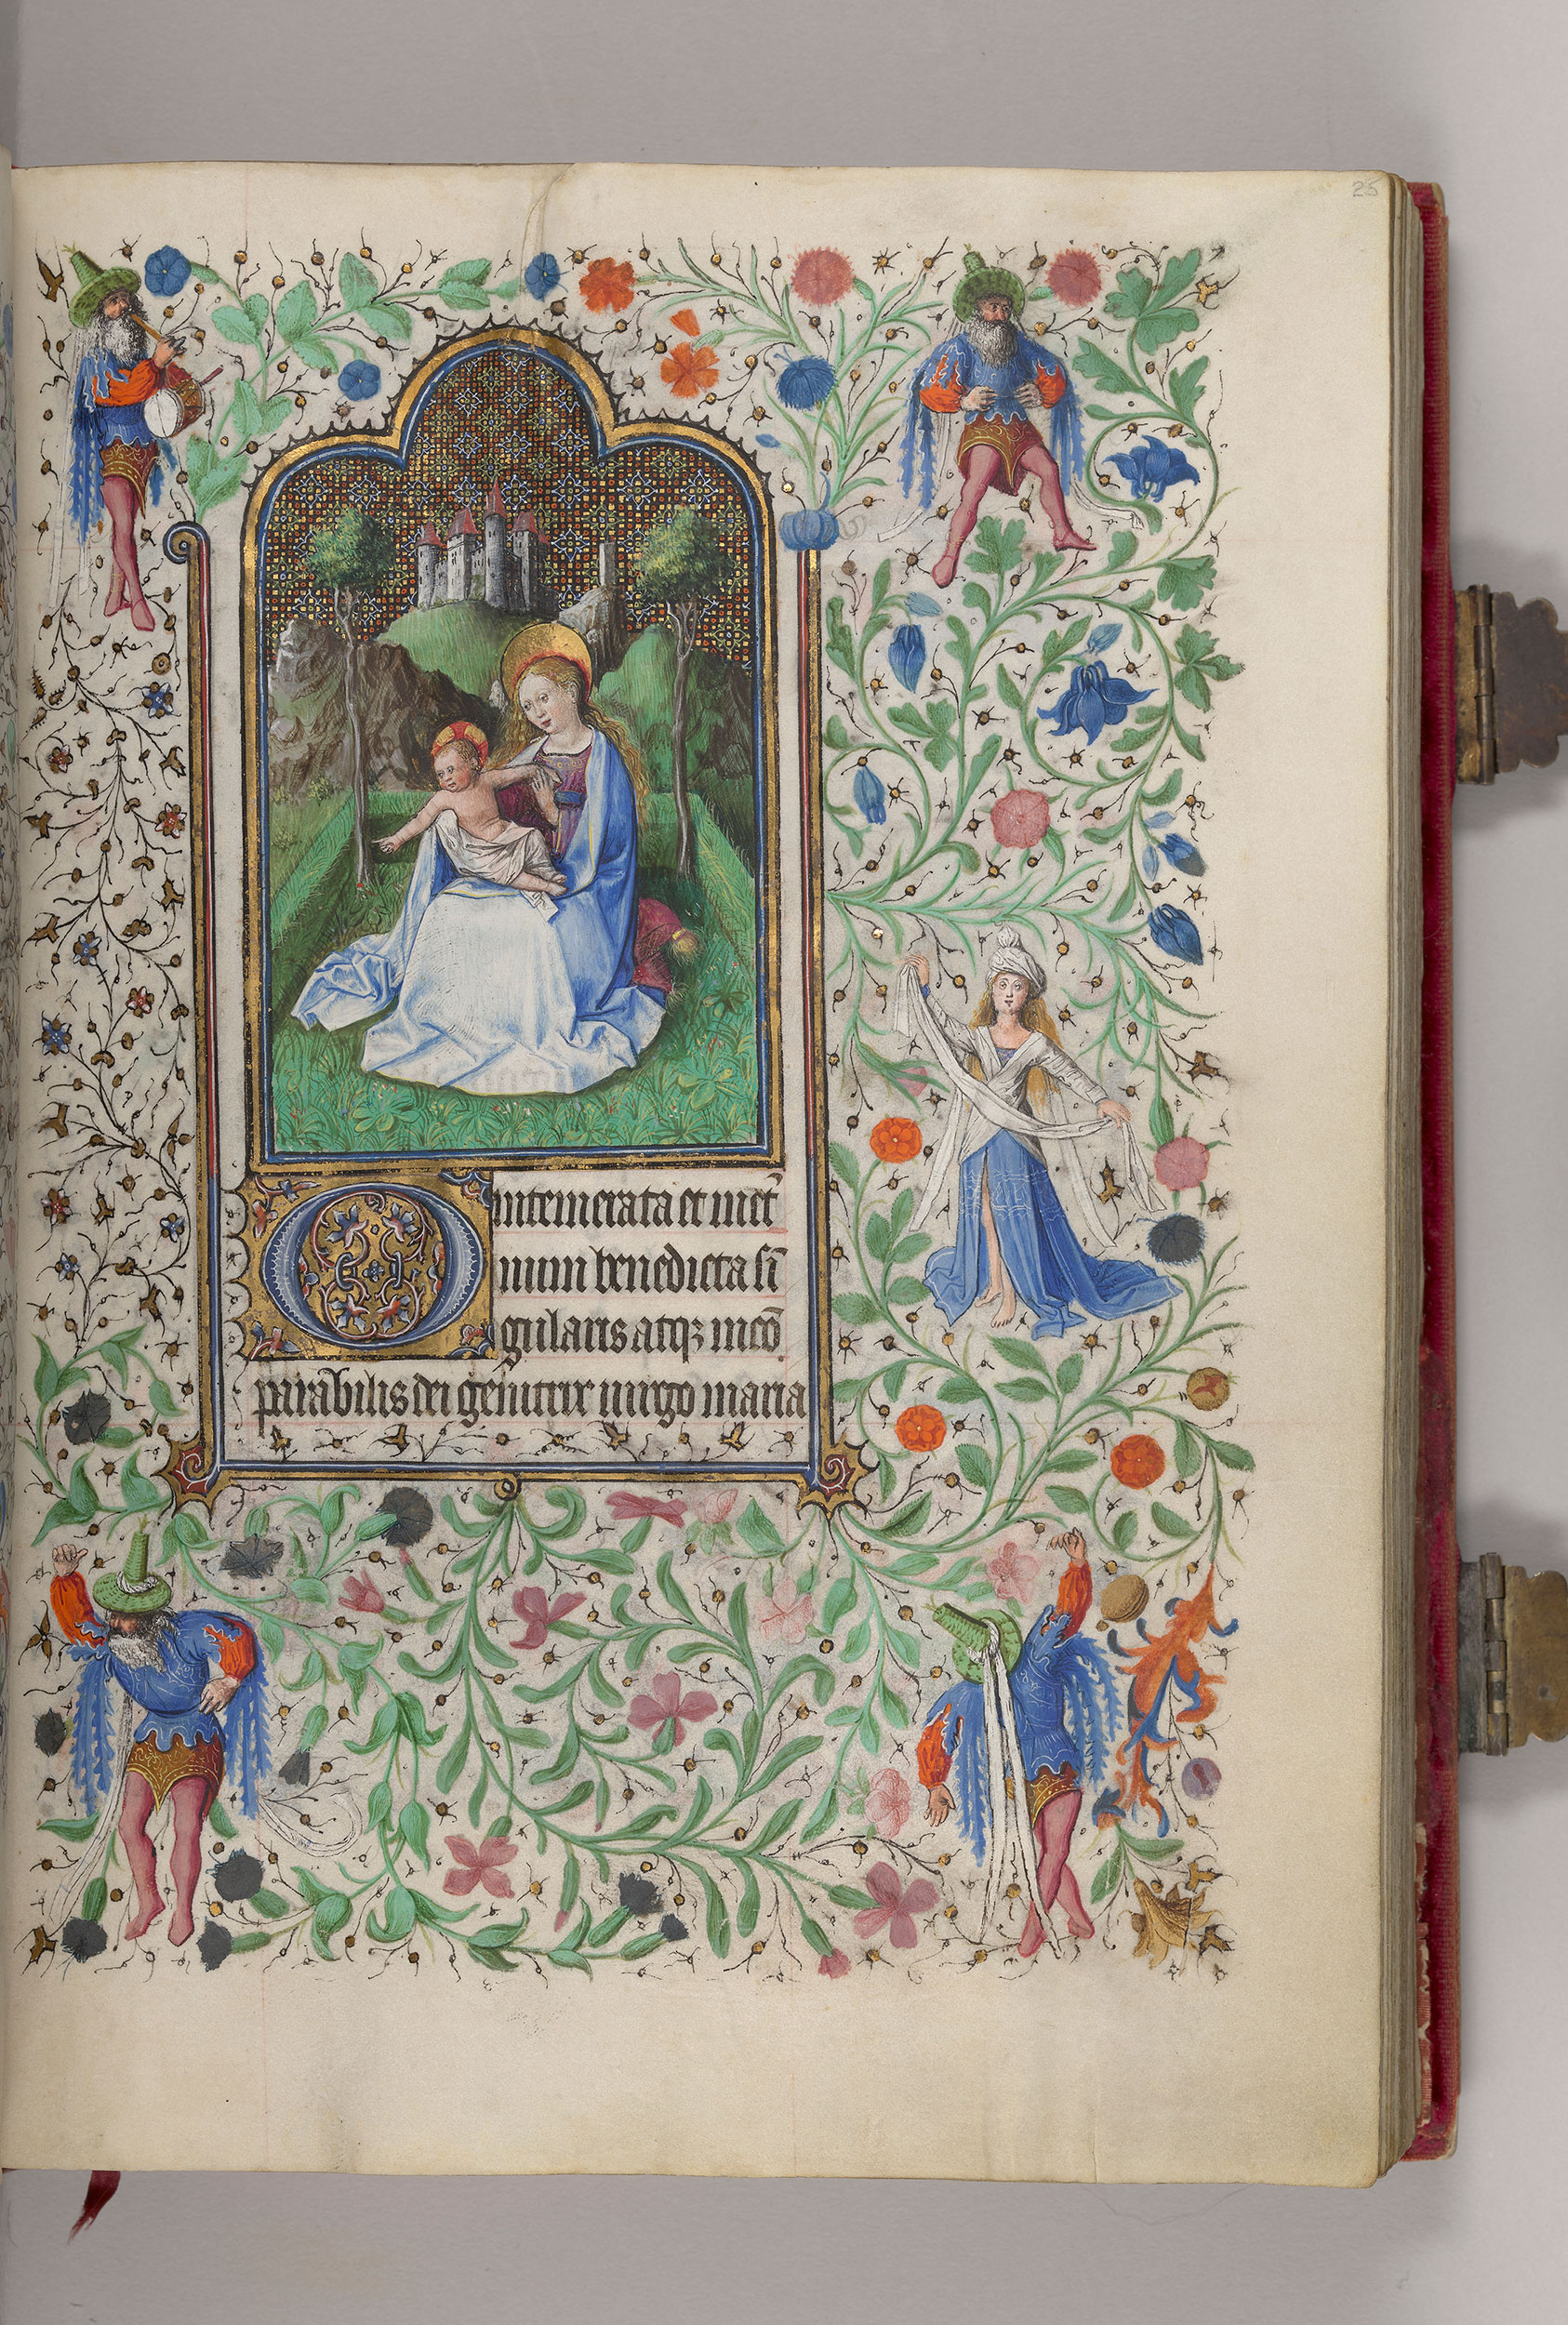 25
O intemerata et inet̄
num benedicta sī
gularis atqꝫ incō
parabilis dei genitrix uirgo maria